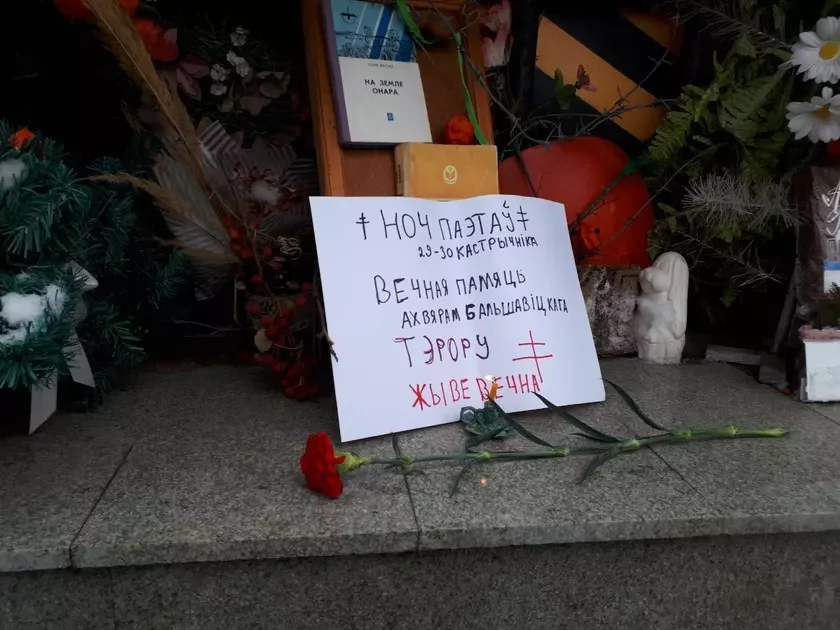 НА ЗЕМЛЕ
ОНАРА
НОЧ ПАЭТАЎ
29-30 КАСТРЫЧНІКА
ВЕЧНАЯ ПАМЯЦЬ
АХВЯРАМ БАЛЬШАВІЦКАГА
ТЭРОРУ
ЖЫВЕ ВЕЧНА